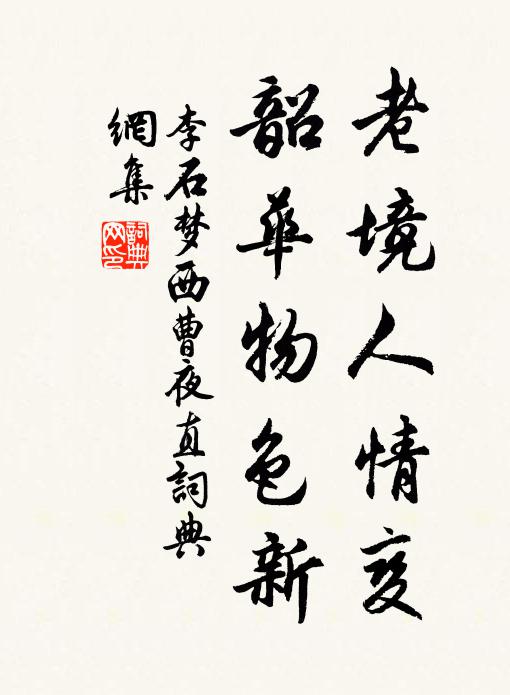 老境人情变
韶华物色新
李石梦西曹夜直詞典
網集
詞典
网印